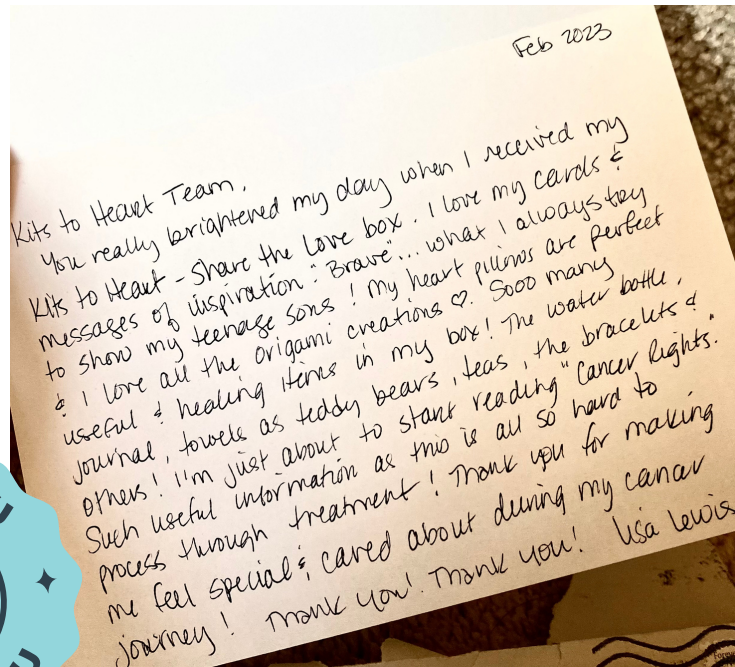 Feb 2023
Kits to Heart Team,
You really brightened my day when I received my
Kits to Heart - Share the Love box. I love my cards &
messages of inspiration "Brave"... what I always try
to show my teenage sons! My heart pillows are perfect
& I love all the origami creations ♡. Sooo many
useful & healing items in my box! The water bottle,
journal, towels as teddy bears, teas, the bracelets &
others! I'm just about to start reading "Cancer Rights."
Such useful information as this is all so hard to
process through treatment! Thank you for making
me feel special & cared about during my cancer
journey! Thank you! Thank you! Lisa Lewis